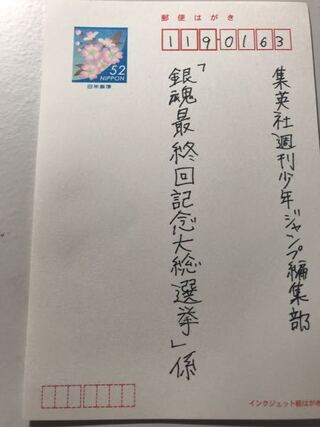 郵便はがき
1190163
52
NIPPON
日本郵便
集英社週刊少年ジャンプ編集部
「銀魂最終回記念大総選挙」係
インクジェット紙はがき